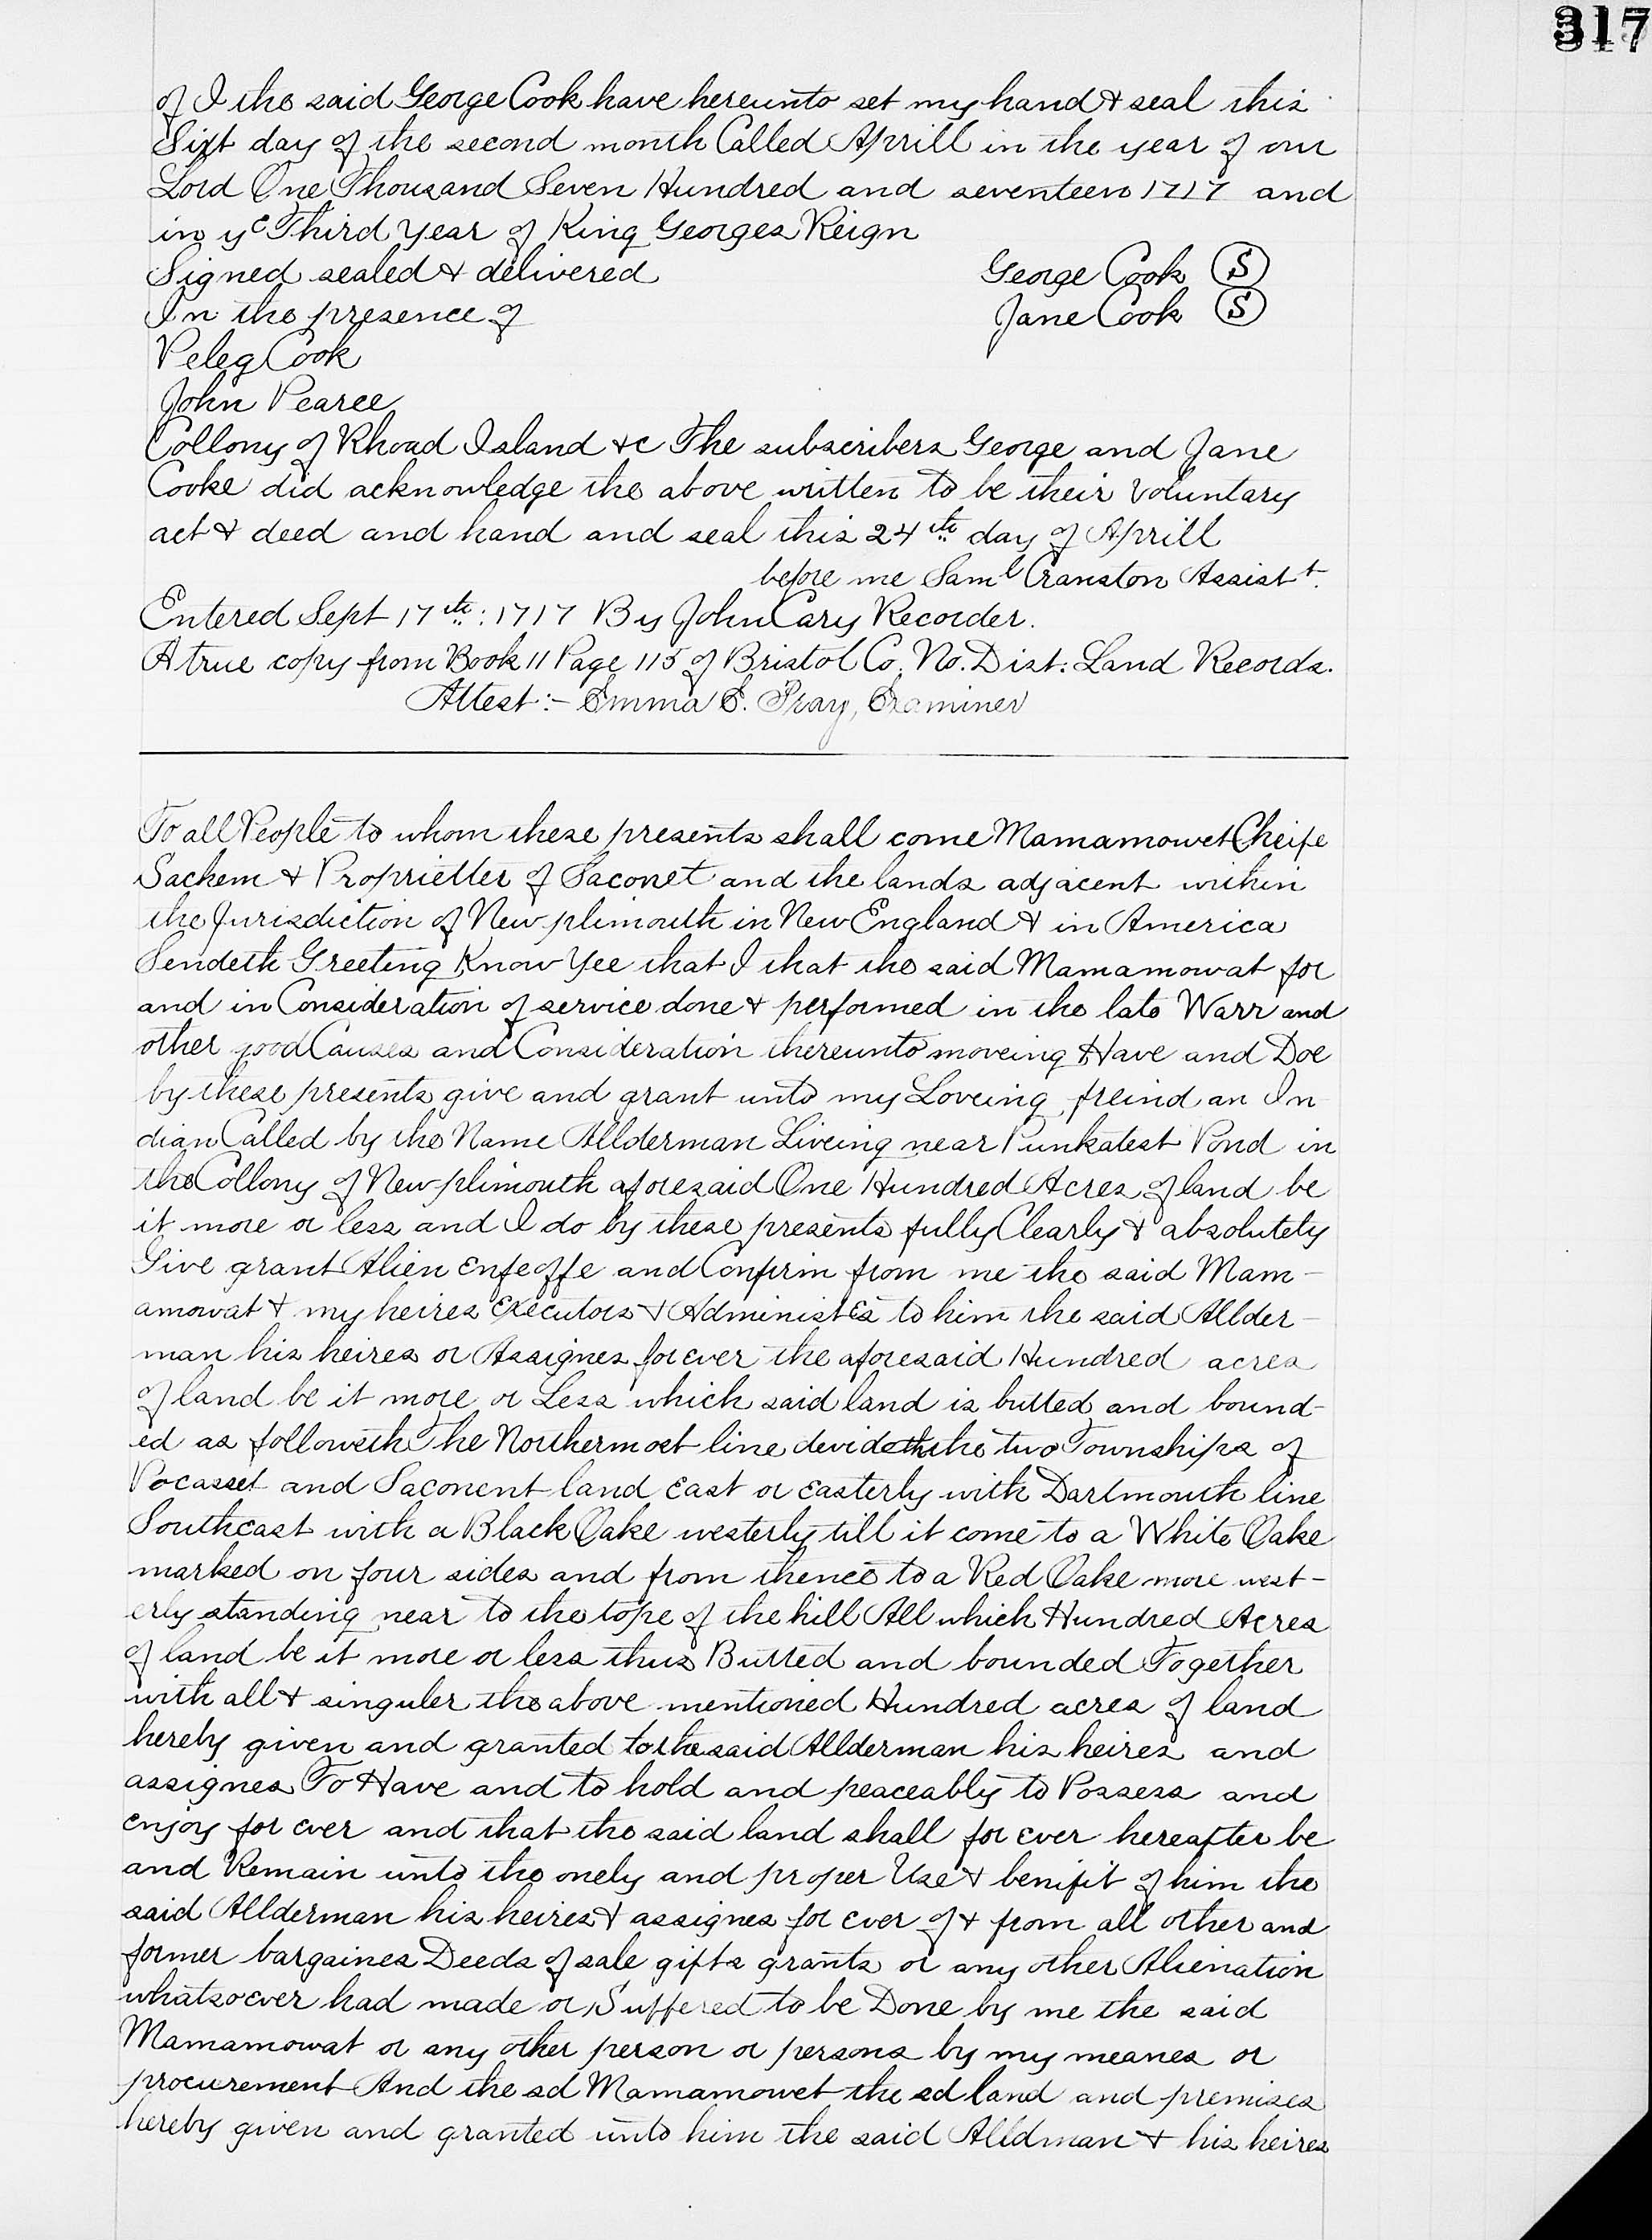 317
of I the said George Cook have hereunto set my hand & seal this
Sixt day of the second month Called Aprill in the year of our
Lord One Thousand Seven Hundred and seventeen 1717 and
in ye Third year of King Georges Reign
Signed sealed & delivered George Cook (S)
In the presence of Jane Cook (S)
Peleg Cook
John Pearce
Collony of Rhoad Island &c The subscribers George and Jane
Cooke did acknowledge the above written to be their voluntary
act & deed and hand and seal this 24th day of Aprill
before me Saml Cranston Assistt.
Entered Sept 17th: 1717 By John Cary Recorder.
A true copy from Book 11 Page 115 of Bristol Co. No. Dist. Land Records.
Attest:- Emma E. Pray, Examiner
To all People to whom these presents shall come Mamamowet Cheife
Sachem & Proprietter of Saconet and the lands adjacent within
the Jurisdiction of New plimouth in New England & in America
Sendeth Greeting Know Yee that I that the said Mamamowat for
and in Consideration of service done & performed in the late Warr and
other good Causes and Consideration thereunto moveing Have and Doe
by these presents give and grant unto my Loveing freind an In
dian Called by the Name Allderman Liveing near Punkatest Pond in
the Collony of New-plimouth aforesaid One Hundred Acres of land be
it more or less and I do by these presents fully Clearly & absolutely
Give grant Alien Enfeoffe and Confirm from me the said Mam-
amowat & my heires Executors & Administrs to him the said Allder-
man his heires or Assignes forever the aforesaid Hundred acres
of land be it more or Less which said land is butted and bound-
ed as followeth The Northermost line devideth the two Townships of
Pocasset and Saconent land East or Easterly with Dartmouth line
Southeast with a Black Oake westerly till it come to a White Oake
marked on four sides and from thence to a Red Oake more west-
erly standing near to the tope of the hill All which Hundred Acres
of land be it more or less thus Butted and bounded Together
with all & singuler the above mentioned Hundred acres of land
hereby given and granted to the said Allderman his heires and
assignes To Have and to hold and peaceably to Possess and
enjoy for ever and that the said land shall for ever hereafter be
and Remain unto the onely and proper Use & benifit of him the
said Allderman his heires & assignes for ever of & from all other and
former bargaines Deeds of sale gifts grants or any other Alienation
whatsoever had made or Suffered to be Done by me the said
Mamamowat or any other person or persons by my meanes or
procurement And the sd Mamamowet the sd land and premises
hereby given and granted unto him the said Alldman & his heires